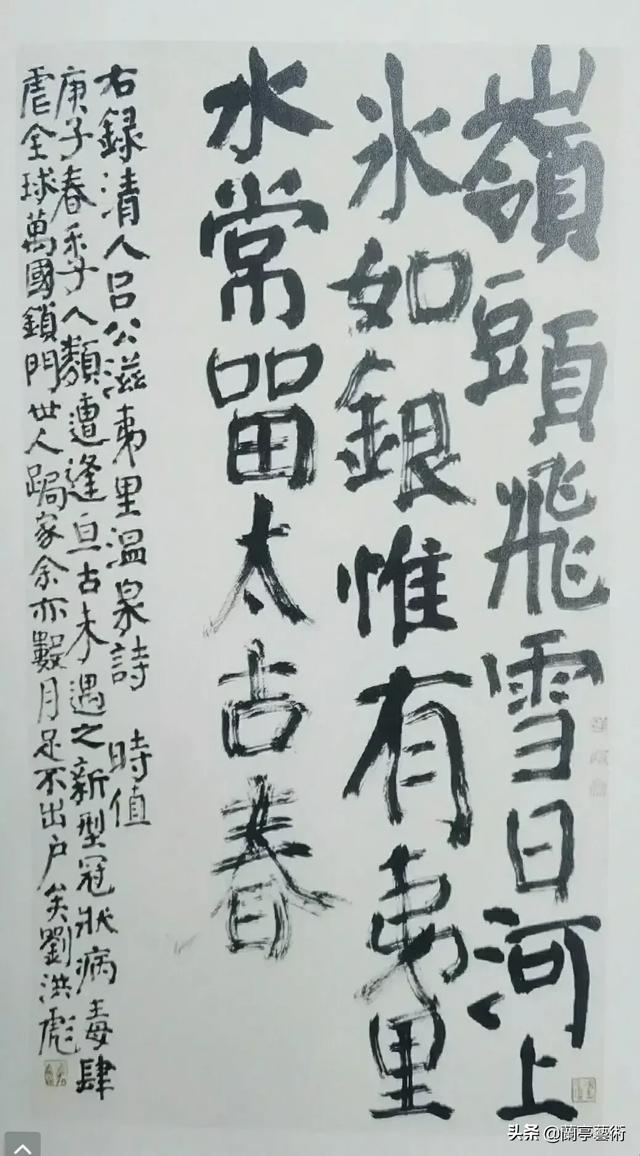 嶺頭飛雪日河上
氷如銀惟有夷里
水常留太古春
右録清人吕公滋夷里温泉詩 時值
庚子春季人類遭逢亘古未遇之新型冠狀病毒肆
虐全球萬國鎖門世人跼家余亦數月足不出户矣劉洪彪
头条 @蘭亭藝術